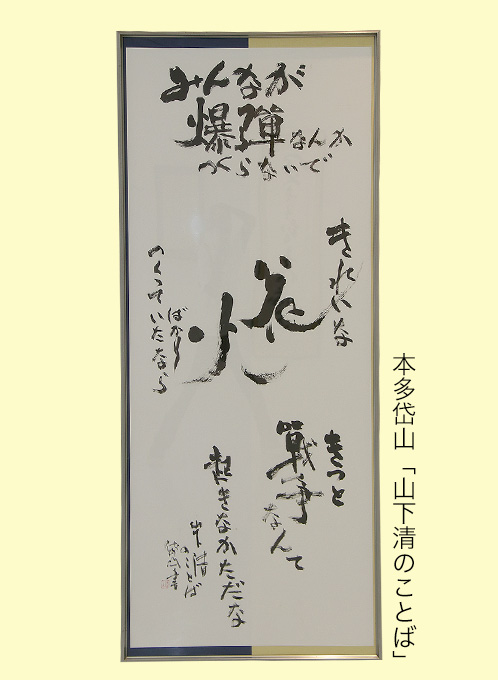 みんなが
爆彈なんか
つくらないで
きれいな
花火
ばかり
つくっていたなら
きっと
戰争なんて
起きなかただな
山下清
のことば
岱山書
本多岱山「山下清のことば」